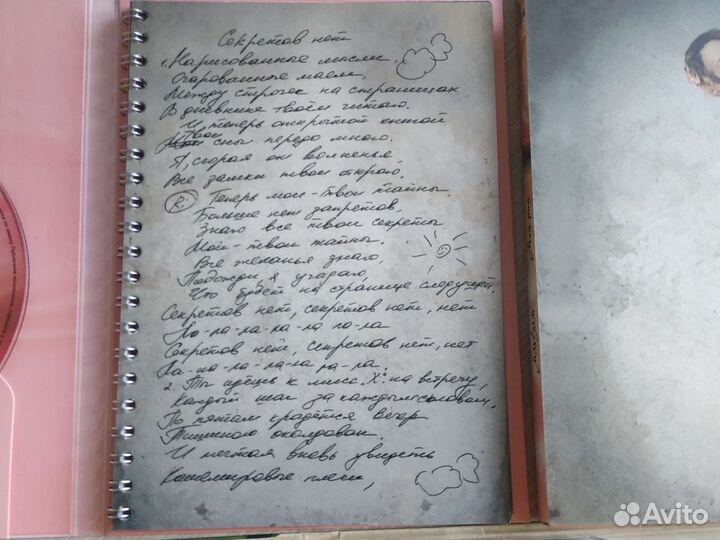 Секретов нет
1. Нарисованные мысли,
Очарованные маем,
Между строчек на страницах
В дневнике твоём читаю.
И теперь открытой книгой
Твои
сны передо мною.
Я, сгорая от волненья,
Все замки твои открою.
R: Теперь мои - твои тайны.
Больше нет запретов,
Знаю все твои секреты
Мои - твои тайны,
Все желанья знаю,
Подожди, я угадаю,
Что будет на странице следующей.
Секретов нет, секретов нет, нет
Ла-ла-ла-ла-ла ла-ла
Секретов нет, секретов нет, нет
Ла-ла-ла-ла-ла ла-ла,
2. Ты идёшь к мисс "Х" на встречу,
Каждый шаг за каждым словом,
По пятам крадётся вечер
Тишиною околдован,
И мечтая вновь увидеть
Кашемировые плечи,
Avito